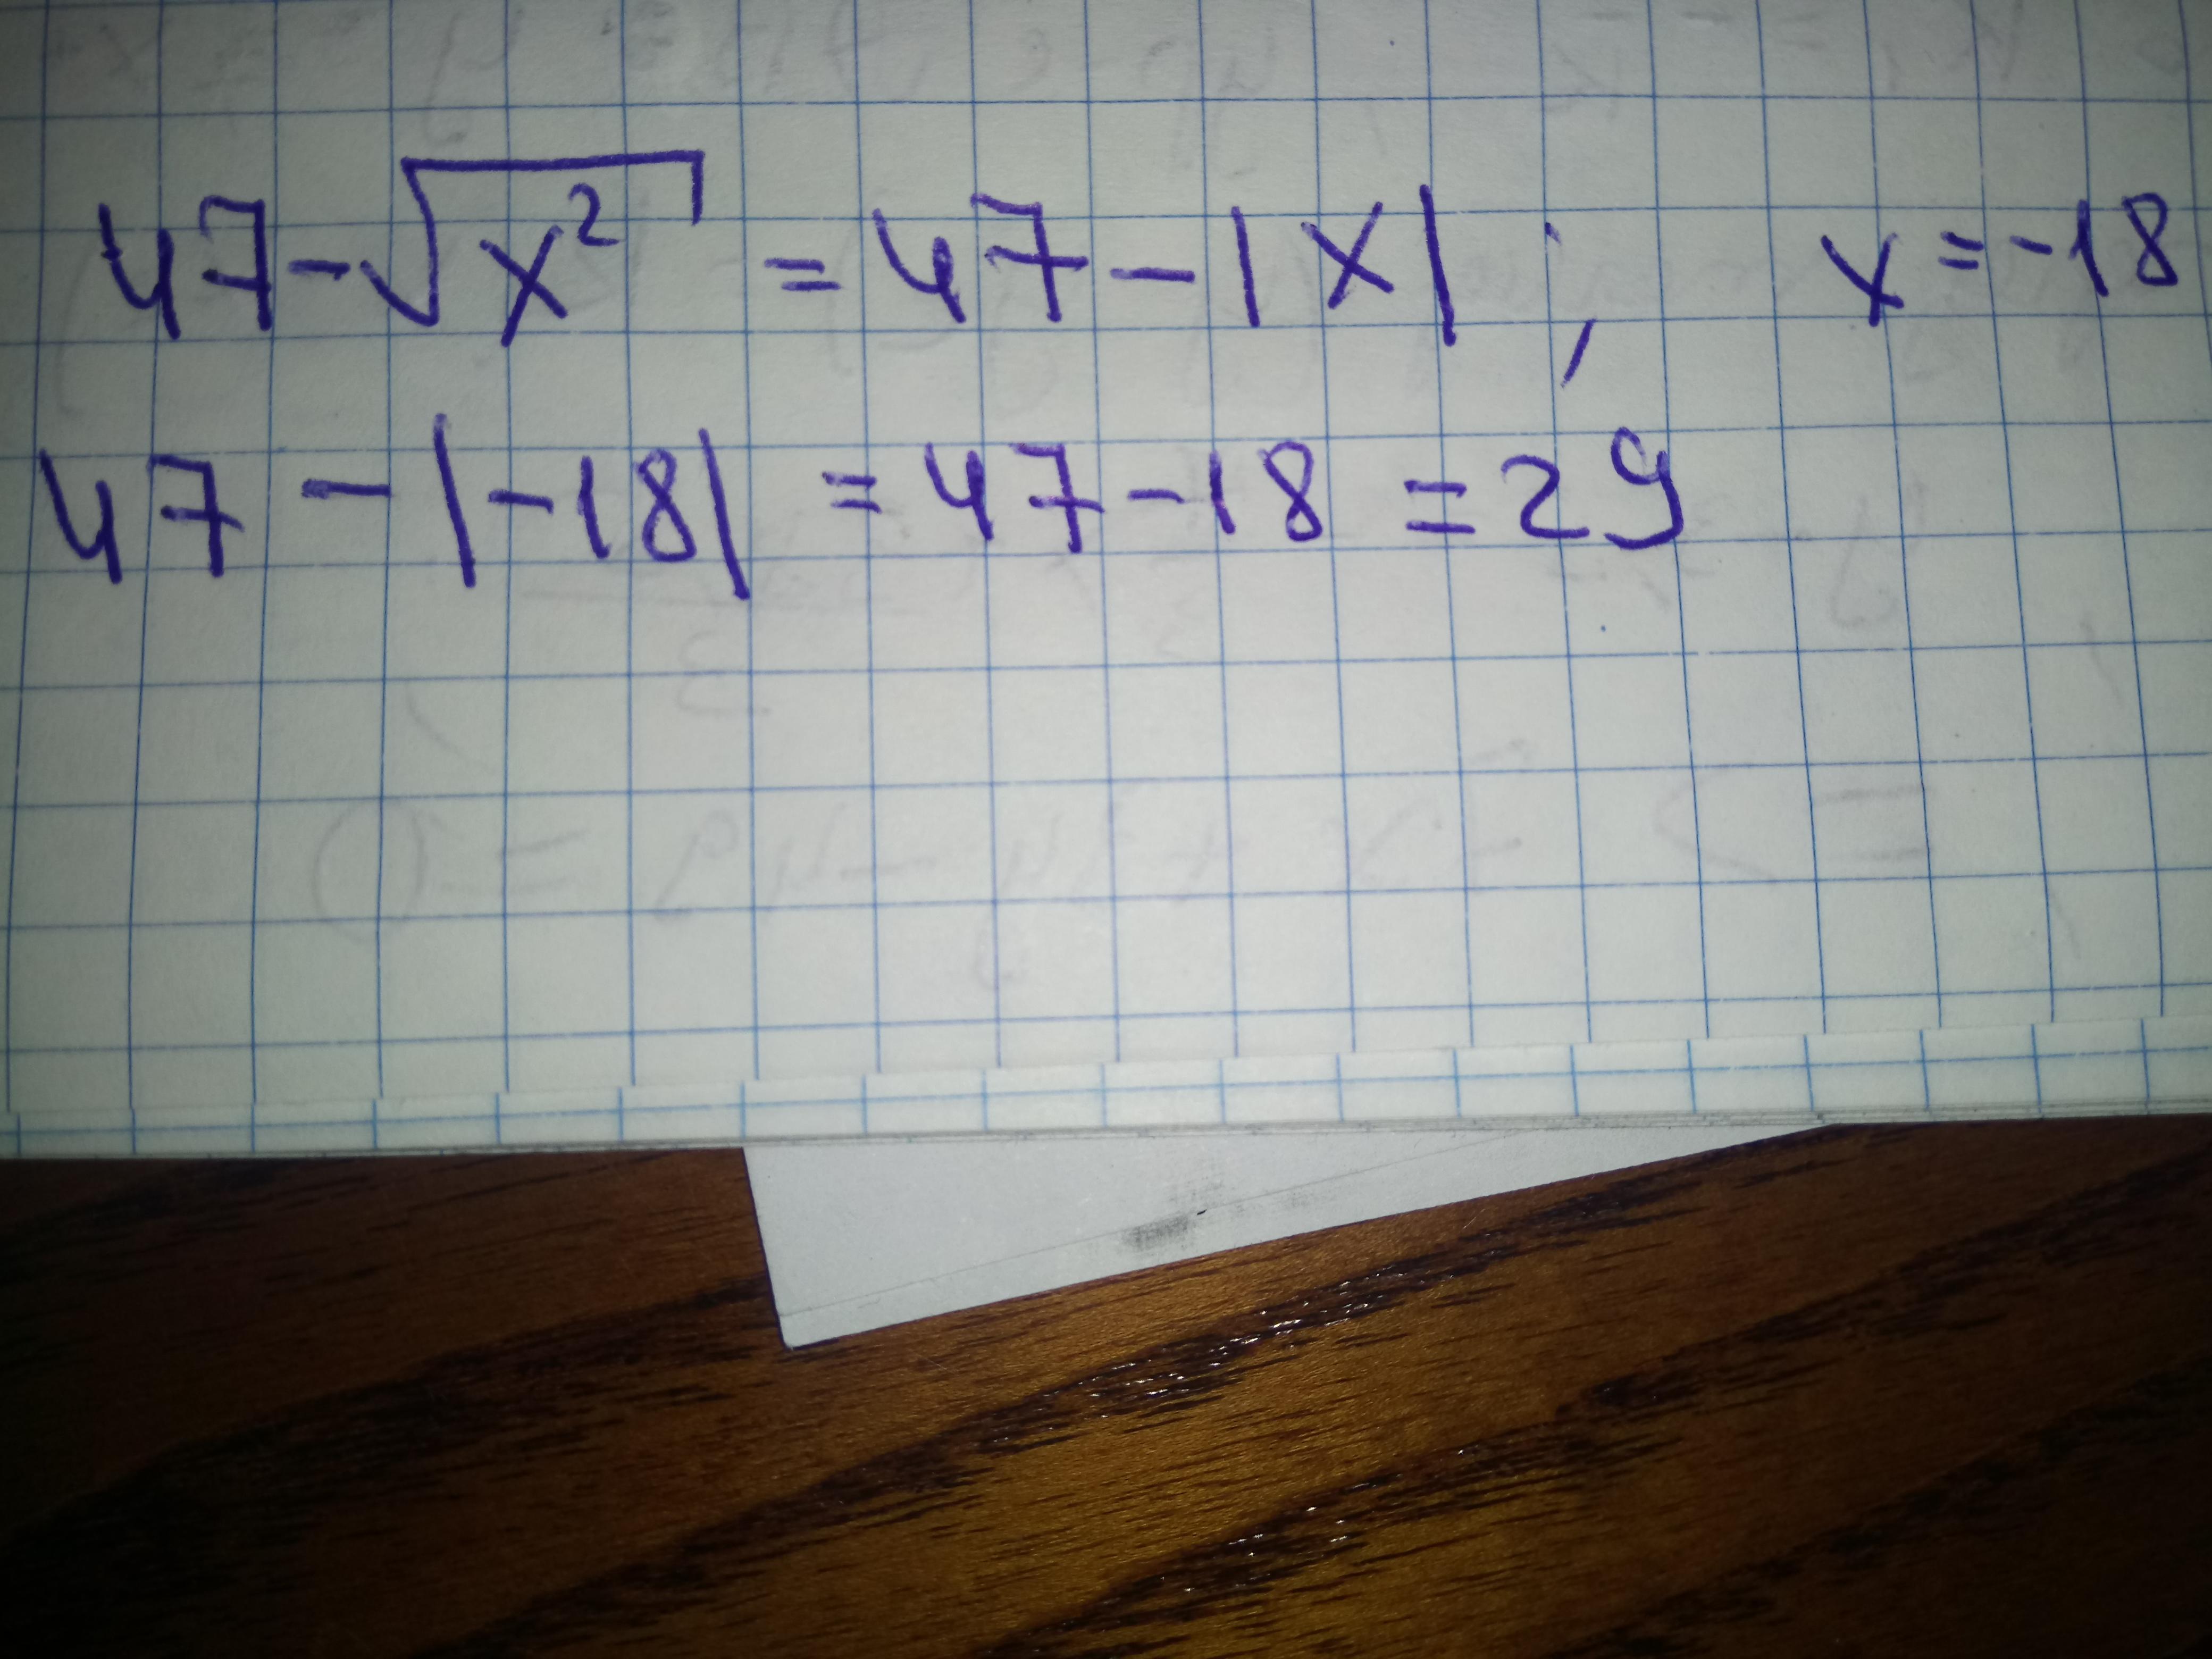 47-√x² = 47-|x| ; x=-18
47-|-18| = 47-18 = 29